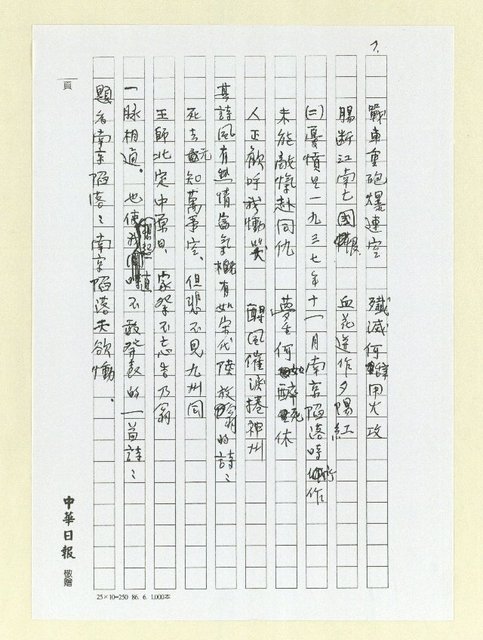 7.
戰車重砲爆連空 殲滅何辭用火攻
腸斷江南亡國恨 血花遙作夕陽紅
(二)憂憤是一九三七年十一月南京陷落時所作
未能敵愾赴同仇 夢去何如醉死休
人正歡呼我慟哭 醒風催淚捲神州
其詩風有熱情當氣概有如宋代陸放翁的詩:
死去元知萬事空,但悲不見九州同
王師北定中原日,家祭不忘告乃翁
一脈相通。也使我想起 不敢發表的一首詩:
題為南京陷落:南京陷落夫欲慟.
頁
中華日報 敬贈
25×10=250 86. 6. 1,000本